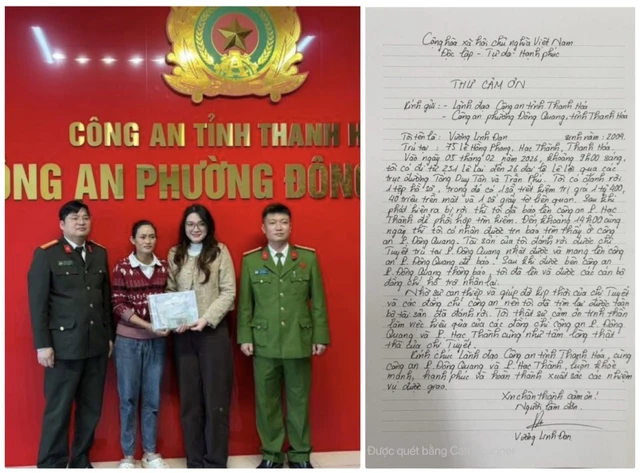 CÔNG AN TỈNH THANH H
ÔNG AN PHƯỜNG ĐÔNG
Cộng hòa xã hội chủ nghĩa Việt Nam
Độc lập - Tự do - Hạnh phúc
THƯ CẢM ƠN
Kính gửi: - Lãnh đạo Công an tỉnh Thanh Hóa
- Công an phường Đông Quang, tỉnh Thanh Hóa
Tôi tên là: Vương Linh Đan sinh năm: 2004
Trú tại: 75 Lê Hồng Phong, Hạc Thành, Thanh Hóa.
Vào ngày 05 tháng 02 năm 2026, khoảng 9h00 sáng,
tôi có đi từ 231 Lê Lai đến 26 đại lộ Lê Lợi qua các
trục đường Tống Duy Tân và Trần Phú. Tôi có đánh rơi
1 tệp hồ sơ, trong đó có 1 số
40 triệu tiền mặt và 1 số giấy tờ liên quan. Sau khi
phát hiện ra bị rơi thì tôi đã báo lên công an P. Hạc
Thành để phối hợp tìm kiếm. Đến khoảng 14h00 cùng
ngày thì tôi có nhận được tin báo tìm thấy ở công
an P. Đông Quang. Tài sản của tôi đánh rơi được chị
Tuyết trú tại P. Đông Quang nhặt được và mang lên công
an P. Đông Quang để báo. Sau khi được bên công an
P. Đông Quang thông báo, tôi đã lên và được các cán bộ
đồng chí hỗ trợ nhận lại.
Nhờ sự can thiệp và giúp đỡ kịp thời của chị Tuyết
và các đồng chí công an nên tôi đã tìm lại được toàn
bộ tài sản đã đánh rơi. Tôi thật sự cảm ơn tinh thần
làm việc hiệu quả của các đồng chí công an P. Đông
Quang và P. Hạc Thành cũng như tấm lòng thật
thà của chị Tuyết.
Kính chúc Lãnh đạo Công an tỉnh Thanh Hóa, cùng
công an P. Đông Quang và P. Hạc Thành, luôn khỏe
mạnh, hạnh phúc và hoàn thành xuất sắc các nhiệm
vụ được giao.
Xin chân thành cảm ơn!
Người làm đơn.
Vương Linh Đan
Được quét bằng